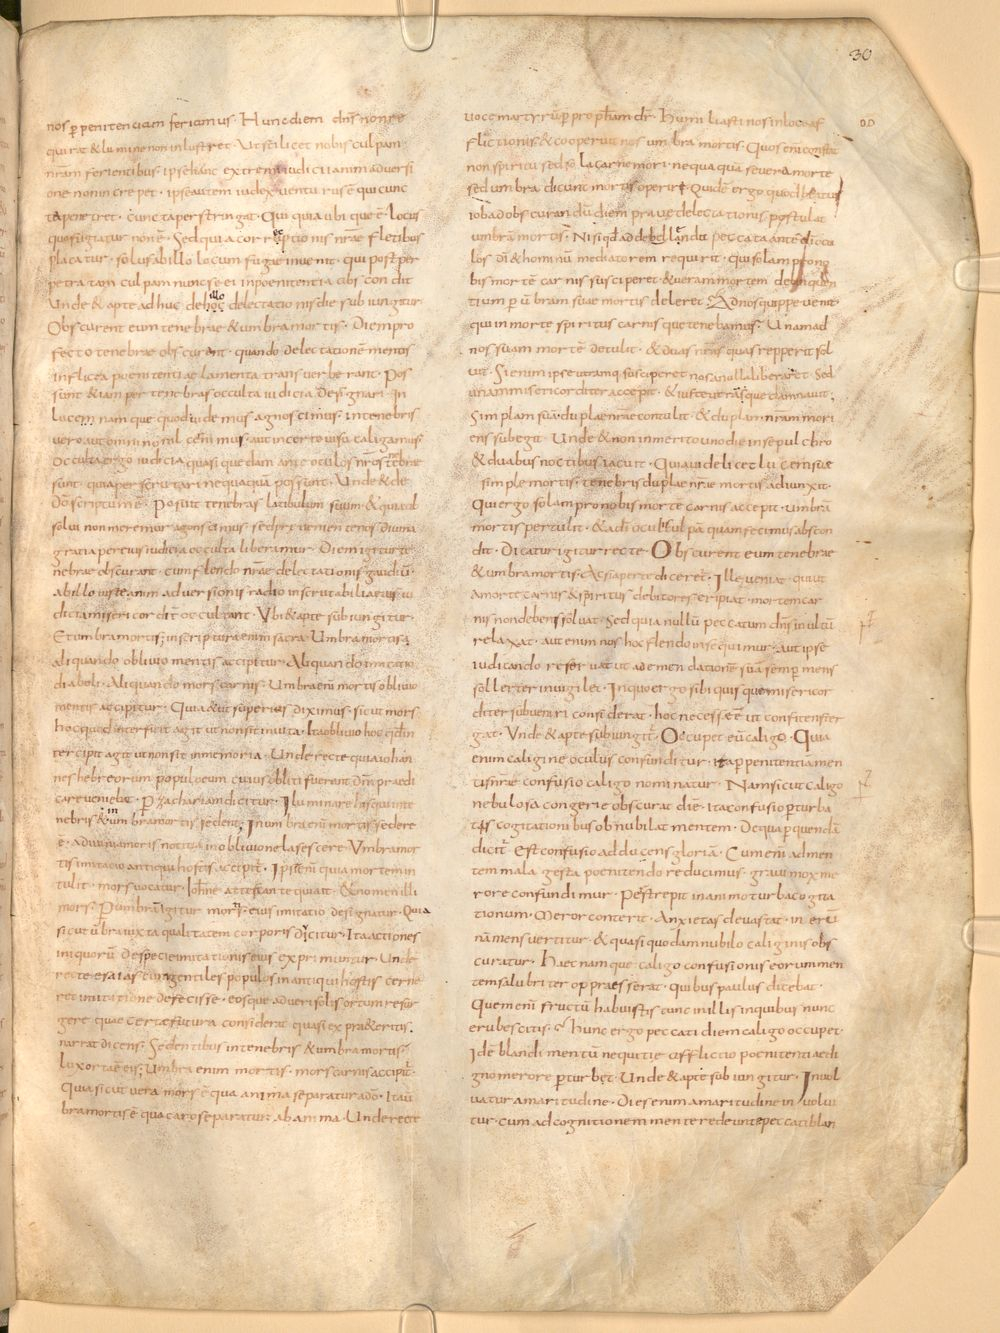 30
nos p penitenciam feriamus · Hunc diem dn̄s non re
quirat & lumine non inlustret · Ut scilicet nobis culpam
nr̄am ferientibus · ipse hanc extremi iudicii animadversi
one non increpet · ipse autem iudex venturus ē qui cunc
ta penetret · cuncta perstringat · Qui quia ubique ē · locus
quo fugiatur non ē · Sed quia correptionis nr̄ae fletibus
placatur · solus ab illo locum fugie invenit · qui post per
petratam culpam nunc se ei in poenitentia abscondit
Unde & apte adhuc de hoc illo delectationis die subiungitur
Obscurent eum tenebrae & umbra mortis · Diem pro
fecto tenebrae obscurant · quando delectationē mentis
inflicta poenitentiae lamenta transverberant · Pos
sunt & iam per tenebras occulta iudicia designari · In
lucem namque quod videmus agnoscimus · in tenebris
vero aut omnino nil cernimus · aut incerto visu caligamus ·
Occulta ergo iudicia quasi quedam ante oculos nr̄os tenebrae
sunt · quia perscrutari nequaquā possunt · Unde & de
dō scriptum ē · Posuit tenebras latibulum suum · & quia ab
solvi non meremur agnoscimus · sed preveniente nos divina
gratia per eius iudicia occulta liberamur · Diem igitur te
nebrae obscurant · cum flendo nr̄ae delectationis gaudiū ·
ab illo iuste animadversionis radio inscrutabilia eius iu
dicia misericordit̄ occultant · Ubi & apte subiungitur
Et umbra mortis; in scriptura enim sacra · Umbra mortis
aliquando oblivio mentis accipitur · Aliquando imitatio
diaboli · Aliquando mors carnis · Umbra eni mortis oblivio
mentis accipitur · Quia & ut superius diximus · sicut mors
hoc quod interficit agit ut non sit in vita · Ita oblivio hoc quod in
tercipit agit ut non sit in memoria · Unde recte quia iohan
nes hebreorum populo eum cuius obliti fuerant dn̄m praedi
care veniebat · P zachariam dicitur · Iluminare his qui in te
nebris & in umbra mortis sedent; In umbra eni mortis sedere
ē · a divini amoris notitia in oblivione lasescere · Umbra mor
tis imitatio antiqui hostis accipit̄ · Ipse eni quia mortem in
tulit · mors vocatur · Iohne attestante qui ait · & nomen illi
mors · P umbrā igitur mortis eius imitatio designatur · Quia
sicut ū bra iuxta qualitatem corporis dicitur · Ita actiones
iniquorū · De specie imitationis eius exprimuntur · Unde
recte esaias cum gentiles populos in antiqui hostis cerne
ret imitatione defecisse · eosque ad veri solis ortum resur
gere · quae certe futura considerat quasi ex praeteritis
narrat dicens · Sedentibus in tenebris & umbra mortis
lux orta ē eis; Umbra enim mortis · mors carnis accipit̄ ·
Quia sicut vera mors ē qua anima separatur a dō · Ita ū
bra mortis ē qua caro separatur ab anima · Unde recte
voce martyrū p pro ph&am dr̄ · Humiliasti nos in loco af
flictionis & cooperuit nos umbra mortis · Quos eni constat
non spiritu sed sola carne mori · nequaquā se vera morte
sed umbra dicunt mortis operiri · Quid ē ergo quod beatus
iob ad obscurandū diem prave delectationis postulat
umbrā mortis · Nisi qd̄ ad delenda peccata ante di ocu
los dī & hominū mediatorem requirit · qui solam pro no
bis mortē carnis susciperet & veram mortem delinquen
tium p ū bram suae mortis deleret · Ad nos quippe venit
qui in morte spiritus carnisque tenebamur · Unam ad
nos suam mortē detulit · & duas nr̄as quas repperit sol
vit · Si enim ipse utramq; susciperet nos a nulla liberaret · Sed
unam misericorditer accepit · & iuste utrasque damnavit ·
Simplam suā duplae nr̄ae contulit · & duplam nr̄am mori
ens subegit · Unde & non inmerito uno die in sepulchro
& duabus noctibus iacuit · Quia videlicet lucem suae
simple mortis · tenebris duplae nr̄ae mortis adiunxit ·
Qui ergo solam pro nobis morte carnis accepit · umbrā
mortis pertulit · & a dī oculis culpā quam fecimus abscon
dit · Dicatur igitur recte · Obscurent eum tenebrae
& umbra mortis · Ac si aperte diceret · Ille veniat · qui ut
a morte carnis & spiritus debitores eripiat · mortem car
nis non debens solvat · Sed quia nullū peccatum dn̄s inultū
relaxat · aut enim nos hoc flendo insequimur · aut ipse
iudicando reservat ut ad emendationē suā semp mens
sollerter invigilet · In quo ergo sibi quis que misericor
diter subveniri considerat · hoc necesse ē ut confitens ter
gat · Unde & apte subiungit̄ · Occupet eū caligo · Quia
enim caligine oculus confunditur · ita p penitentia men
tis nr̄ae confusio caligo nominatur · Nam sicut caligo
nebulosa congerie obscurat diē · Ita confusio p turba
tas cogitationibus obnubilat mentem · De qua p quendā
dicit̄ · Est confusio adducens gloriā · Cum eni ad men
tem mala gesta poenitendo reducimus · gravi mox me
rore confundimur · Pestrepit in animo turba cogita
tionum · Meror conterit · Anxietas devastat · in eru
nā mens vertitur · & quasi quodam nubilo caliginis obs
curatur · Haec namque caligo confusionis eorum men
tem salubriter oppraesserat · quibus paulus dicebat ·
Quem eni fructū habuistis tunc in illis in quibus nunc
erubescitis · Hunc ergo peccati diem caligo occupet ·
Idē blandimentū nequitie afflictio poenitentiae di
gno merore p turbet · Unde & apte subiungitur · Invol
vatur amaritudine · Dies enim amaritudine involvi
tur · cum ad cognitionem mente redeunte peccati blan